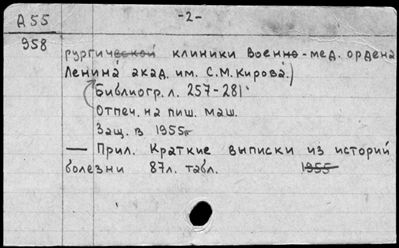 А55
-2-
958
рургической клиники Военно-мед. ордена
Ленина акад. им. С.М.Кирова.)
Библиогр. л. 257-281
Отпеч. на пиш. маш.
Защ. в 1955г
— Прил. Краткие выписки из историй
болезни 87л. табл. 1955